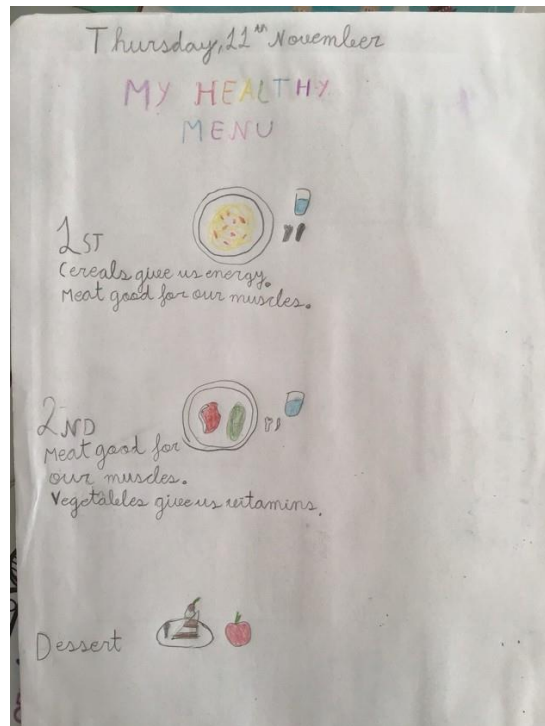 Thursday, 11th November
MY HEALTHY
MENU
1ST
Cereals give us energy.
Meat good for our muscles.
2ND
Meat good for
our muscles.
Vegetables give us vitamins.
Dessert